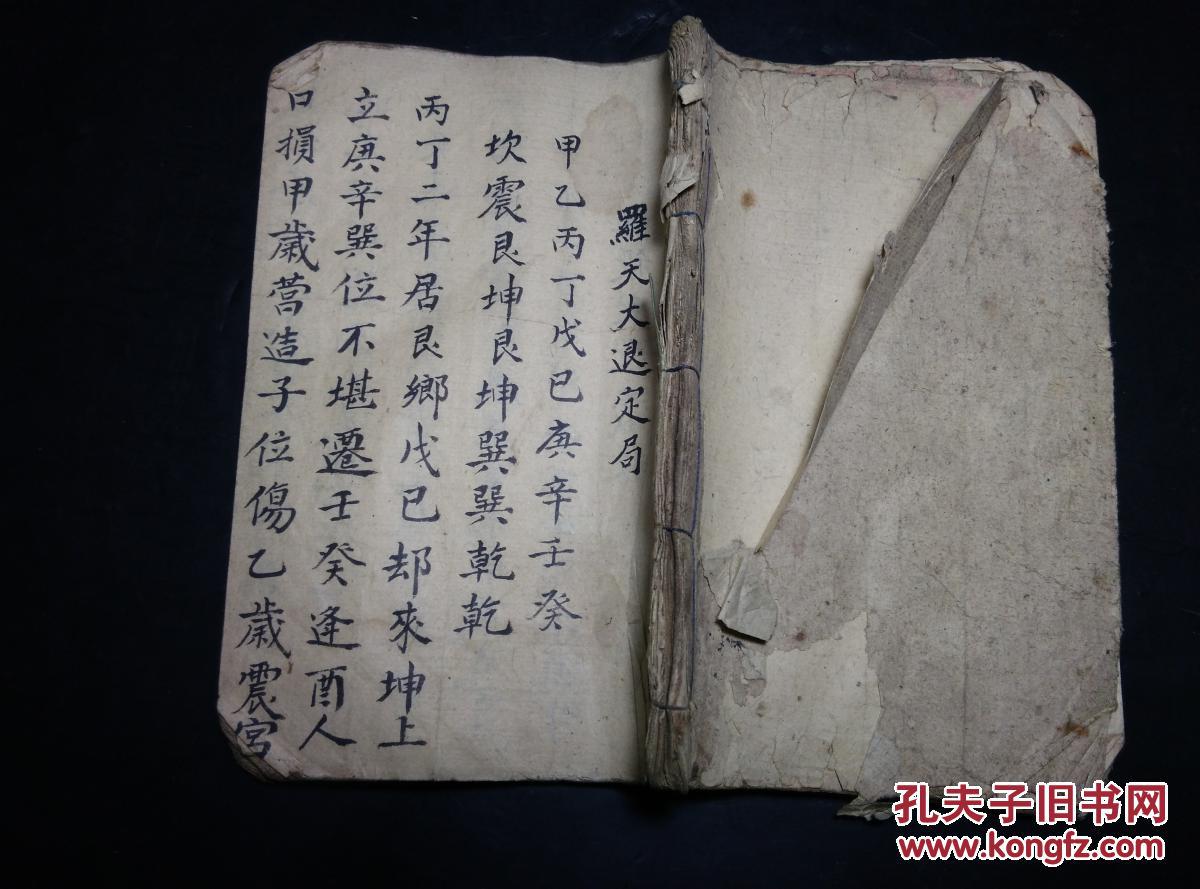 羅天大退定局
甲乙丙丁戊已庚辛壬癸
坎震艮坤艮坤巽巽乾乾
丙丁二年居艮鄉戊已却來坤上
立庚辛巽位不堪遷壬癸逢酉人
口損甲歲營造子位傷乙歲震宮
孔夫子旧书网
www.kongfz.com